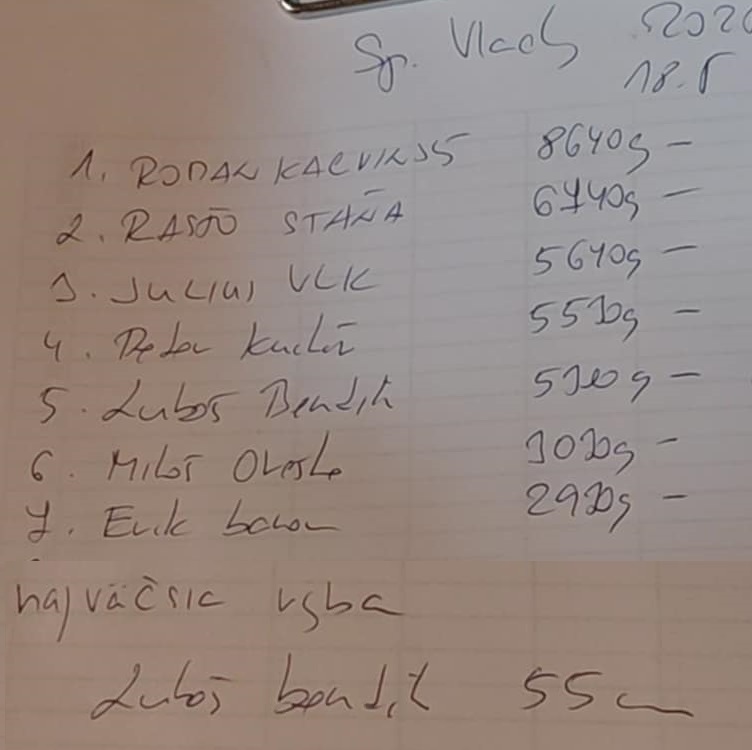 Sp. Vlachy 2020
18.5
1. ROMAN KALVINSKÝ 8640g -
2. RASŤO STAŇA 6740g -
3. JULIUS VLK 5640g -
4. Peter 5530g -
5. Luboš Bendík g -
6. Miloš 3030g -
7. Erik 2930g -
najväčsia ryba
Luboš bendik 55cm